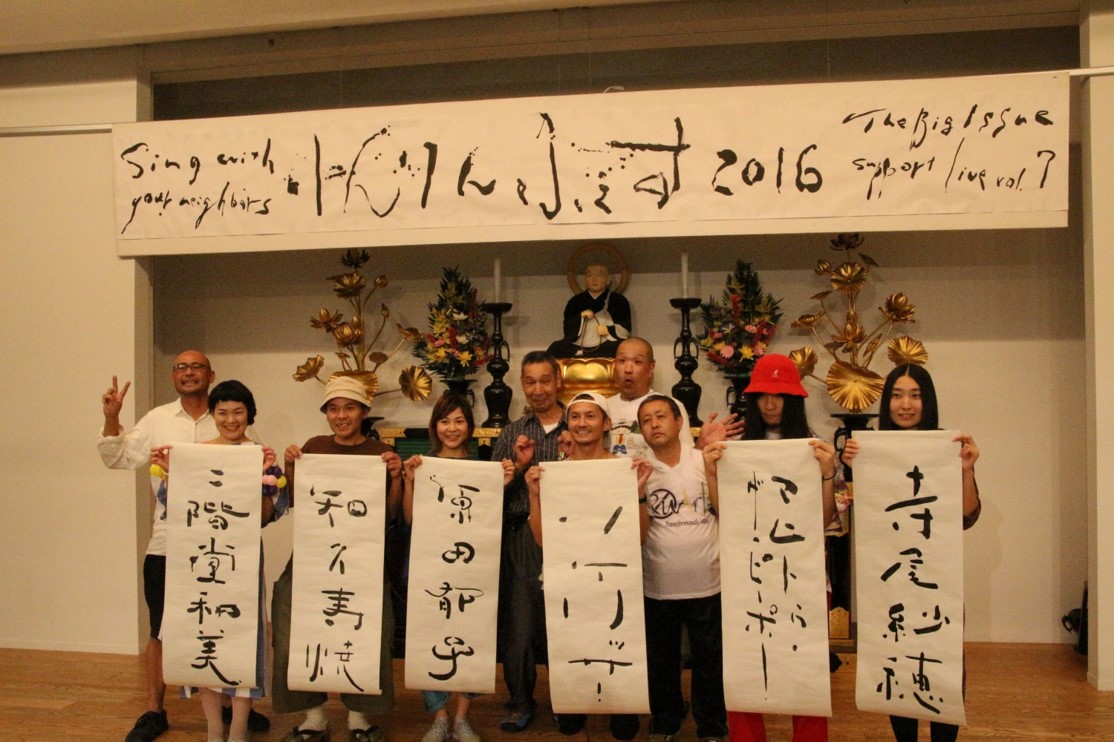 Sing with
your neighbors
りんりんふぇす 2016
The Big Issue
support live vol.7
二階堂和美
知久寿焼
原田郁子
ソケリッサ!
ピーポー
寺尾紗穂